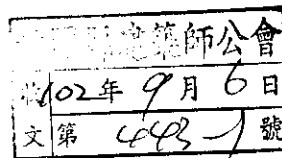 建築師公會
收102年9月6日
文第443-1號